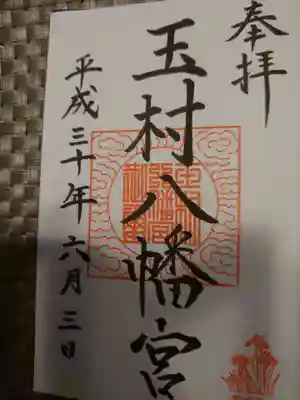 奉拝
玉村八幡宮
平成三十年六月三日